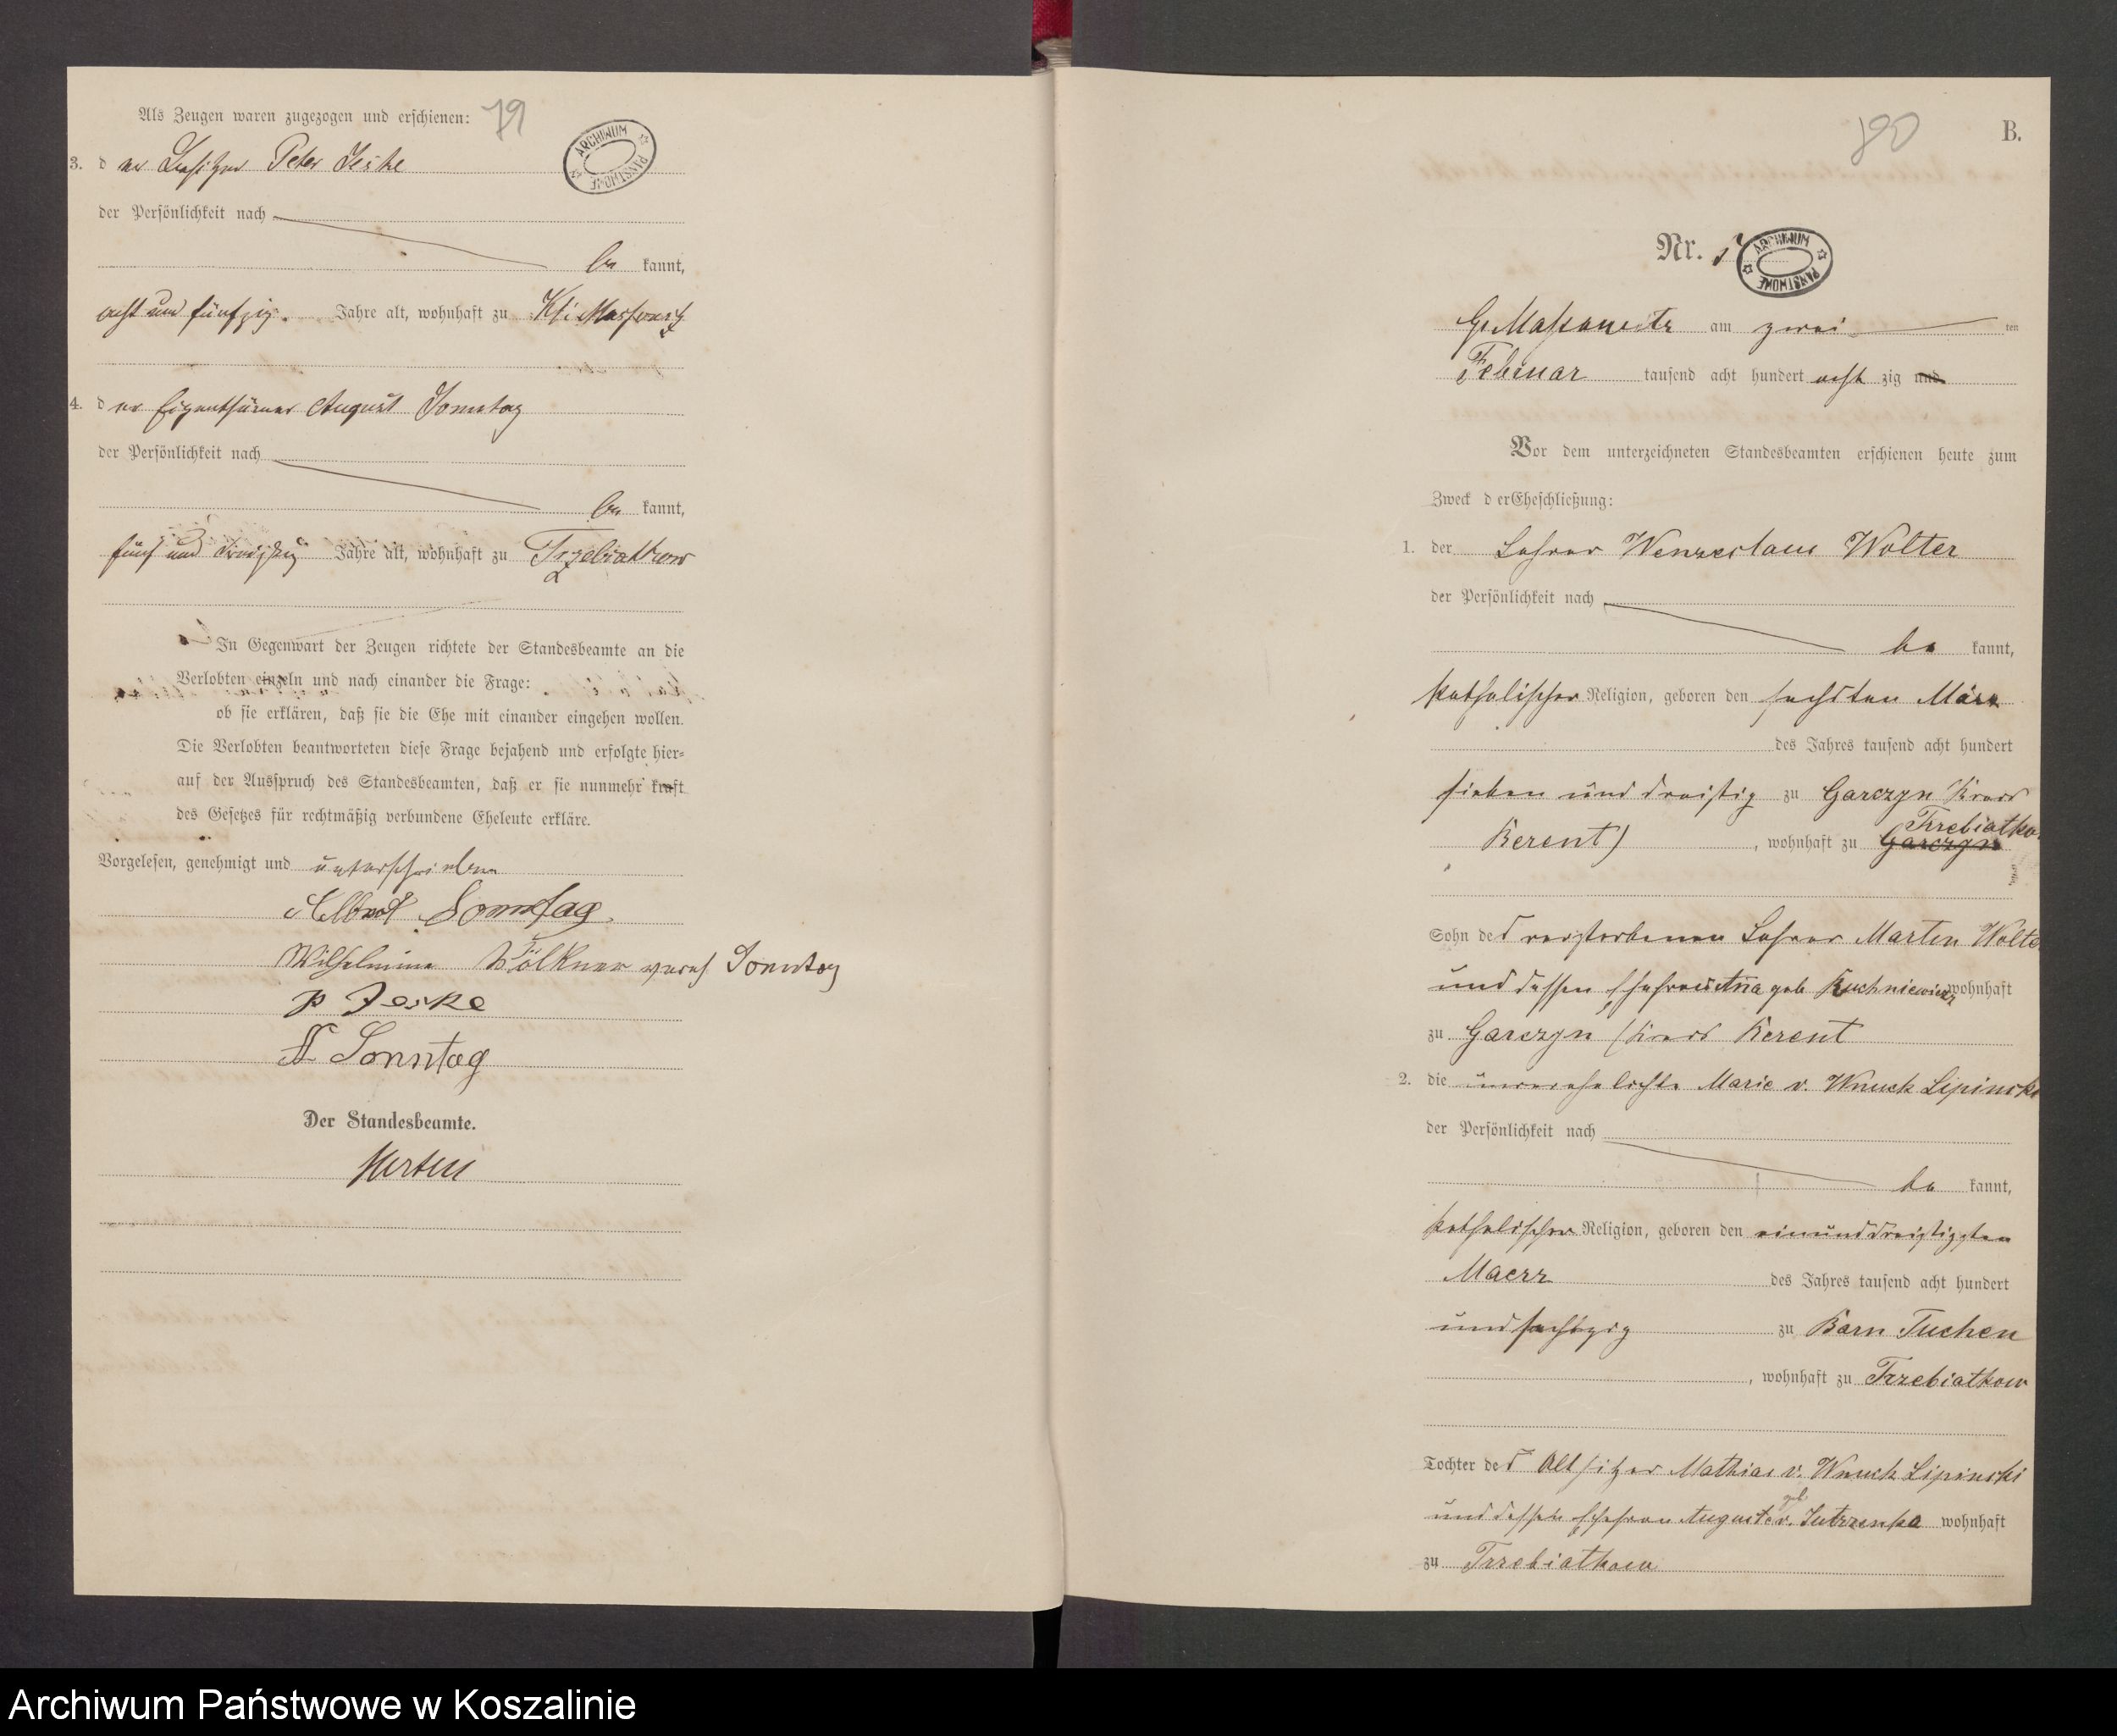 Als Zeugen waren zugezogen und erschienen: 79
ARCHIWUM PAŃSTWOWE
3. der Besitzer Peter Jeske
der Persönlichkeit nach
be kannt,
acht und fünfzig Jahre alt, wohnhaft zu Kl. Massowitz
4. der Eigenthümer August Sonntag
der Persönlichkeit nach
be kannt,
fünf und dreißig Jahre alt, wohnhaft zu Trzebiatkow
In Gegenwart der Zeugen richtete der Standesbeamte an die
Verlobten einzeln und nach einander die Frage:
ob sie erklären, daß sie die Ehe mit einander eingehen wollen.
Die Verlobten beantworteten diese Frage bejahend und erfolgte hier-
auf der Ausspruch des Standesbeamten, daß er sie nunmehr kraft
des Gesetzes für rechtmäßig verbundene Eheleute erkläre.
Vorgelesen, genehmigt und unterschrieben
Albert Sonntag
Wilhelmine Völkner verehl Sonntag
P Jeske
A Sonntag
Der Standesbeamte.
Merten
80
B.
Nr.
ARCHIWUM PAŃSTWOWE
Gr Massowitz am zwei ten
Februar tausend acht hundert acht zig und
Vor dem unterzeichneten Standesbeamten erschienen heute zum
Zweck der Eheschließung:
1. der Lehrer Wenzeslaus Wolter
der Persönlichkeit nach
be kannt,
katholischer Religion, geboren den sechsten März
des Jahres tausend acht hundert
sieben und dreißig zu Garczyn Kreis
Berent) , wohnhaft zu Garczyn Trzebiatko
Sohn des verstorbenen Lehrer Martin Wolte
und dessen Ehefrau Anna geb Ruchniewicz wohnhaft
zu Garczyn (Kreis Berent
2. die unverehelichte Marie v. Wnuck Lipinski
der Persönlichkeit nach
be kannt,
katholischer Religion, geboren den einunddreißigsten
Maerz des Jahres tausend acht hundert
und sechszig zu Barn Tuchen
, wohnhaft zu Trzebiatkow
Tochter des Altsitzer Mathias v. Wnuck Lipinski
und dessen Ehefrau Auguste geb v. Jutrzenka wohnhaft
zu Trzebiatkow
Archiwum Państwowe w Koszalinie